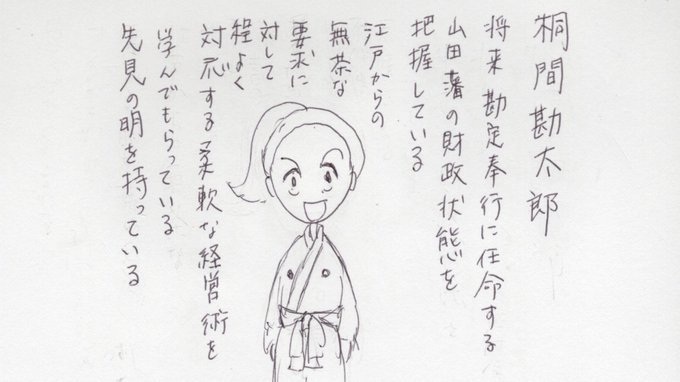 桐間勘太郎
将来勘定奉行に任命する
山田藩の財政状態を
把握している
江戸からの
無茶な
要求に
対して
程よく
対応する柔軟な経営術を
学んでもらっている
先見の明を持っている